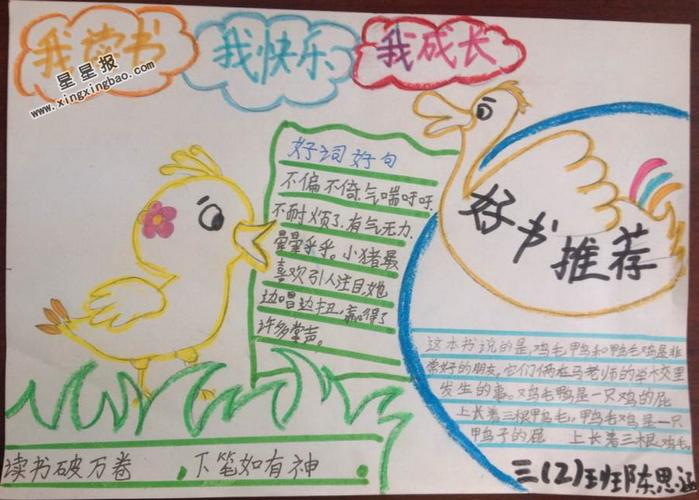 我读书
我快乐
我成长
星星报
www.xingxingbao.com
好词好句
不偏不倚.气喘吁吁.
不耐烦了.有气无力.
晕晕乎乎。小猪最
喜欢引人注目,她
边唱边扭,赢得了
许多掌声。
好书推荐
这本书说的是,鸡毛鸭和鸭毛鸡是非
常好的朋友,它们俩在马老师的学校里
发生的事。鸡毛鸭是一只鸡的屁
上长着三根鸭毛,鸭毛鸡是一只
鸭子的屁 上长着三根鸡毛。
读书破万卷 ,下笔如有神 .
三(2)班陈思